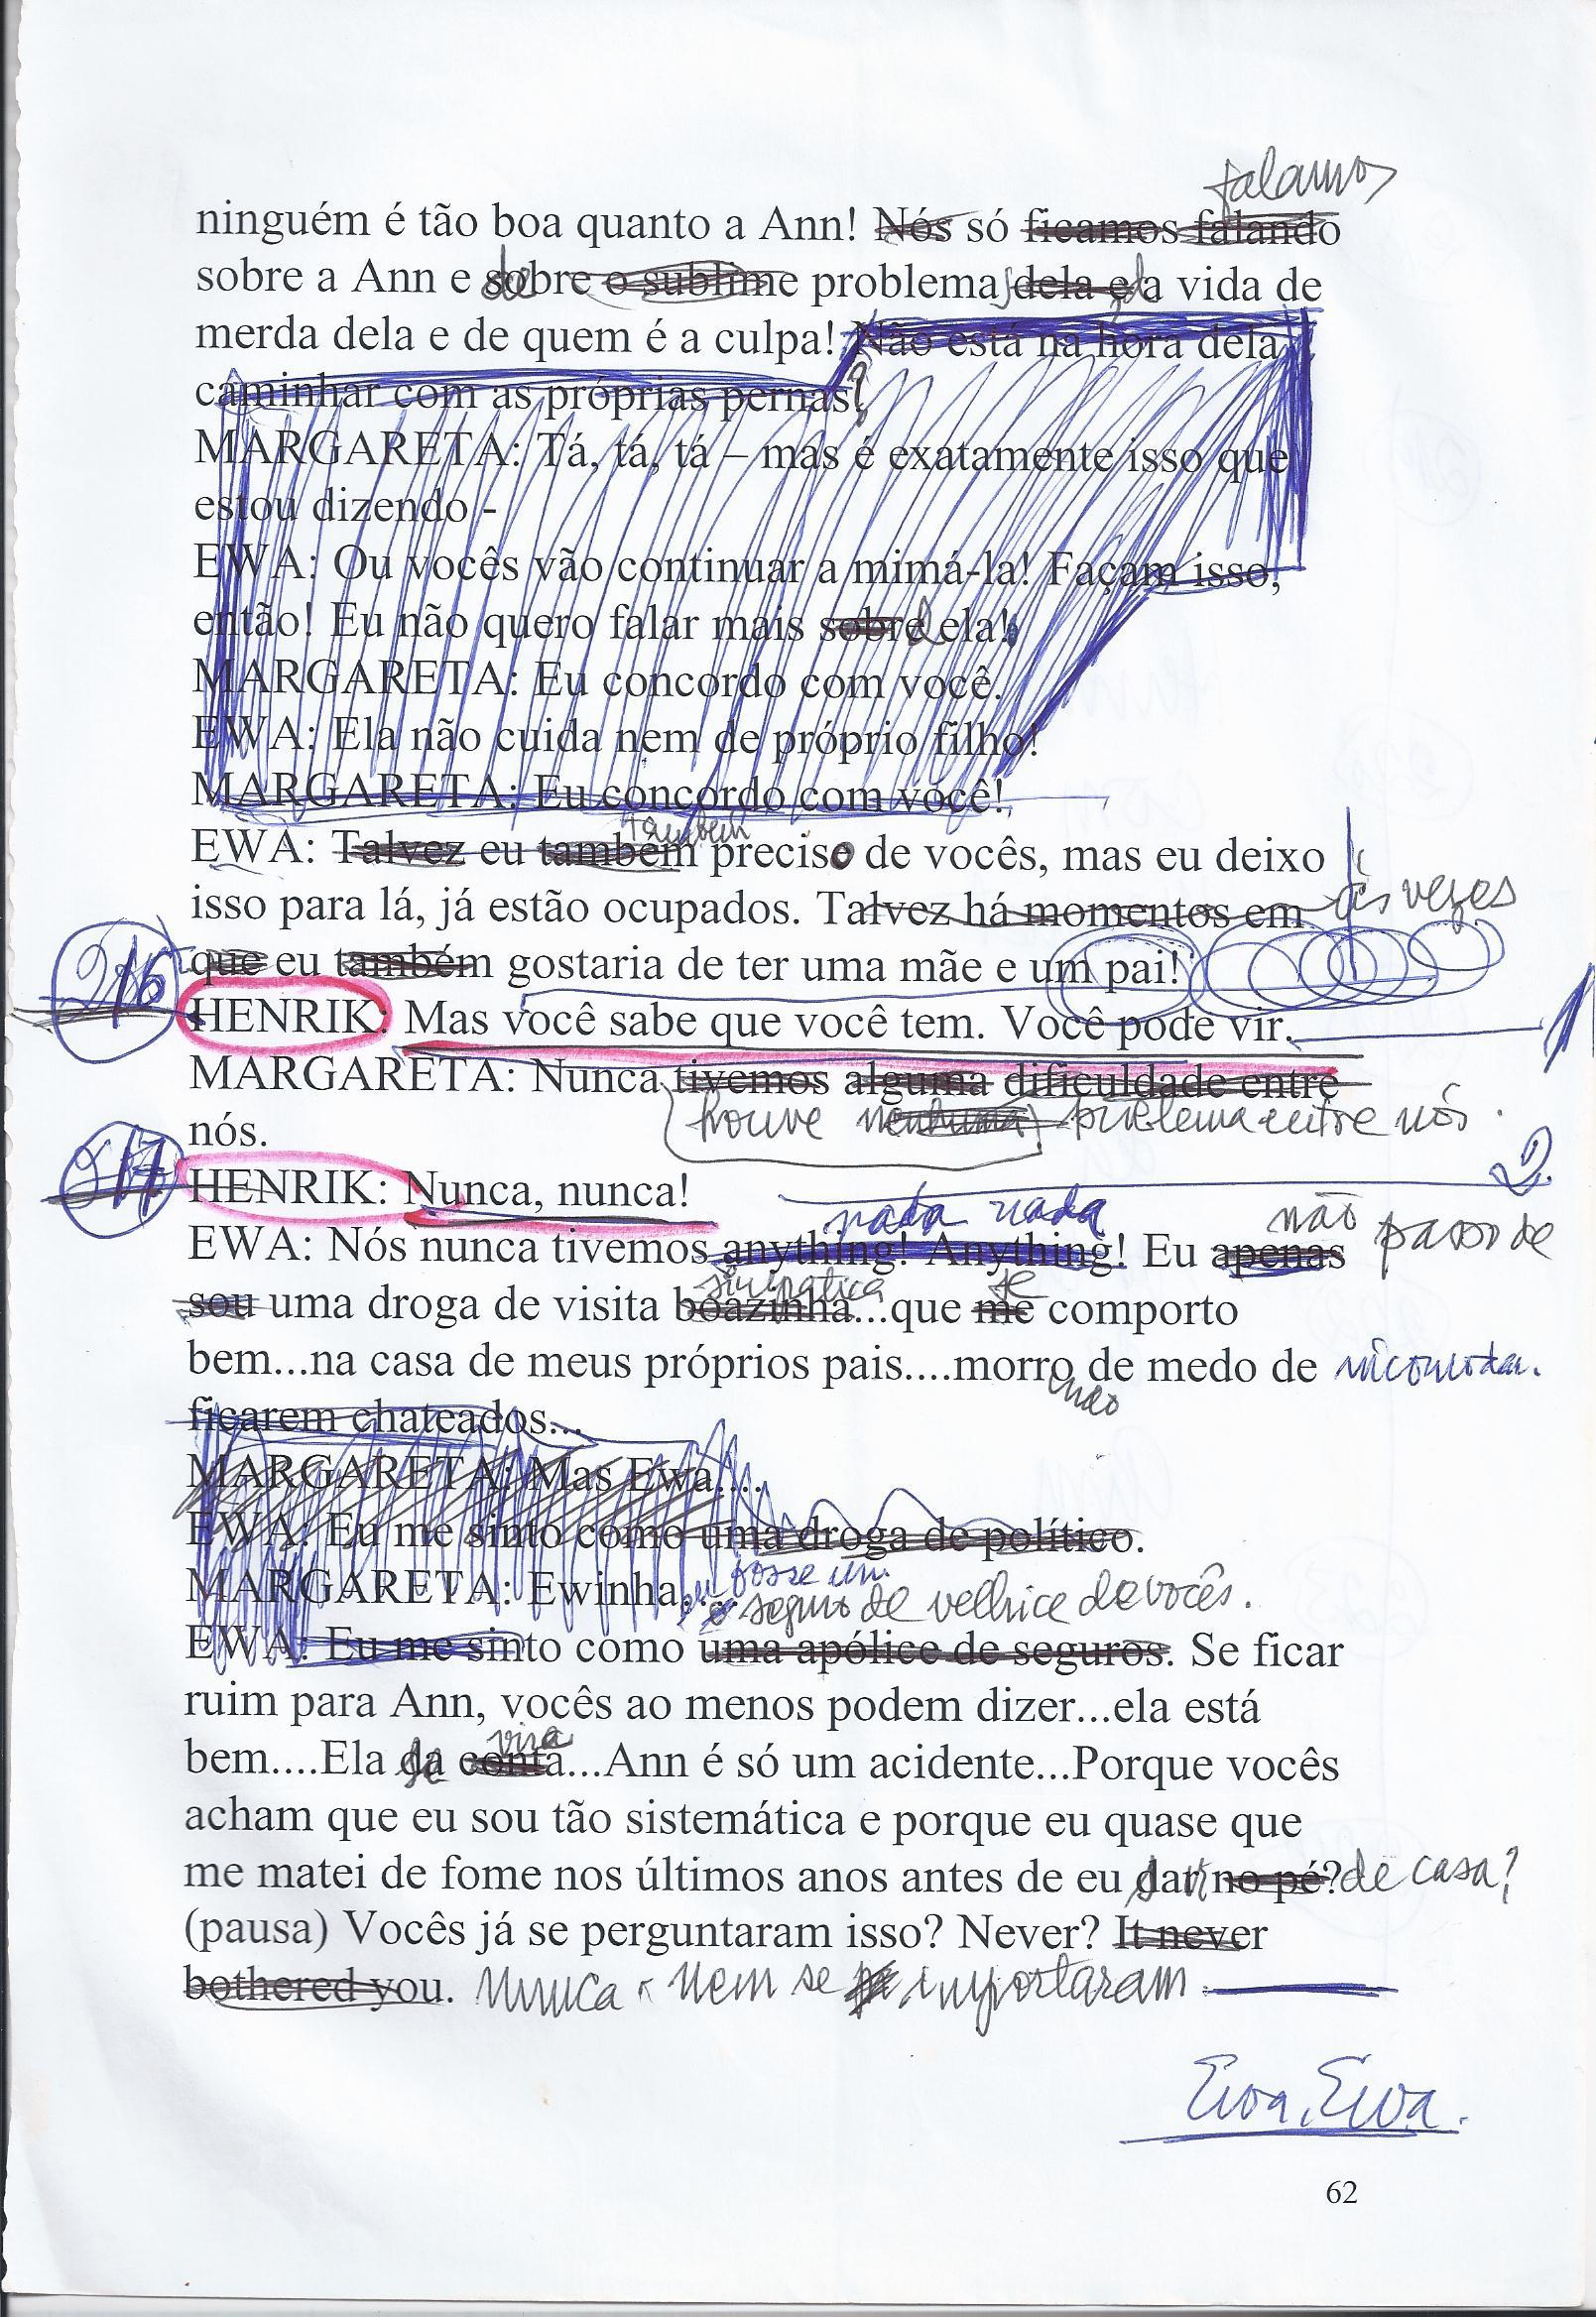 falamos
ninguém é tão boa quanto a Ann! Nós só ficamos falando
sobre a Ann e sobre o sublime problema dela e a vida de
de
merda dela e de quem é a culpa! Não está na hora dela
caminhar com as próprias pernas?
MARGARETA: Tá, tá, tá – mas é exatamente isso que
estou dizendo -
EWA: Ou vocês vão continuar a mimá-la! Façam isso,
então! Eu não quero falar mais sobre ela!
MARGARETA: Eu concordo com você.
EWA: Ela não cuida nem de próprio filho!
MARGARETA: Eu concordo com você!
também
EWA: Talvez eu também preciso de vocês, mas eu deixo
isso para lá, já estão ocupados. Talvez há momentos em às vezes
que eu também gostaria de ter uma mãe e um pai!
16
HENRIK: Mas você sabe que você tem. Você pode vir. 1
MARGARETA: Nunca tivemos alguma dificuldade entre
houve nenhuma problema entre nós.
nós.
17 HENRIK: Nunca, nunca! 2.
nada nada não passo de
EWA: Nós nunca tivemos anything! Anything! Eu apenas
simpática se
sou uma droga de visita boazinha...que me comporto
bem...na casa de meus próprios pais....morro de medo de incomodar.
endo
ficarem chateados...
MARGARETA: Mas Ewa....
EWA: Eu me sinto como uma droga de político.
eu fosse um
MARGARETA: Ewinha....
seguro de velhice de vocês.
EWA: Eu me sinto como uma apólice de seguros. Se ficar
ruim para Ann, vocês ao menos podem dizer...ela está
vira
bem....Ela da conta...Ann é só um acidente...Porque vocês
se
acham que eu sou tão sistemática e porque eu quase que
me matei de fome nos últimos anos antes de eu dar no pé? de casa?
(pausa) Vocês já se perguntaram isso? Never? It never
bothered you. Nunca nem se importaram
Ewa, Ewa.
62